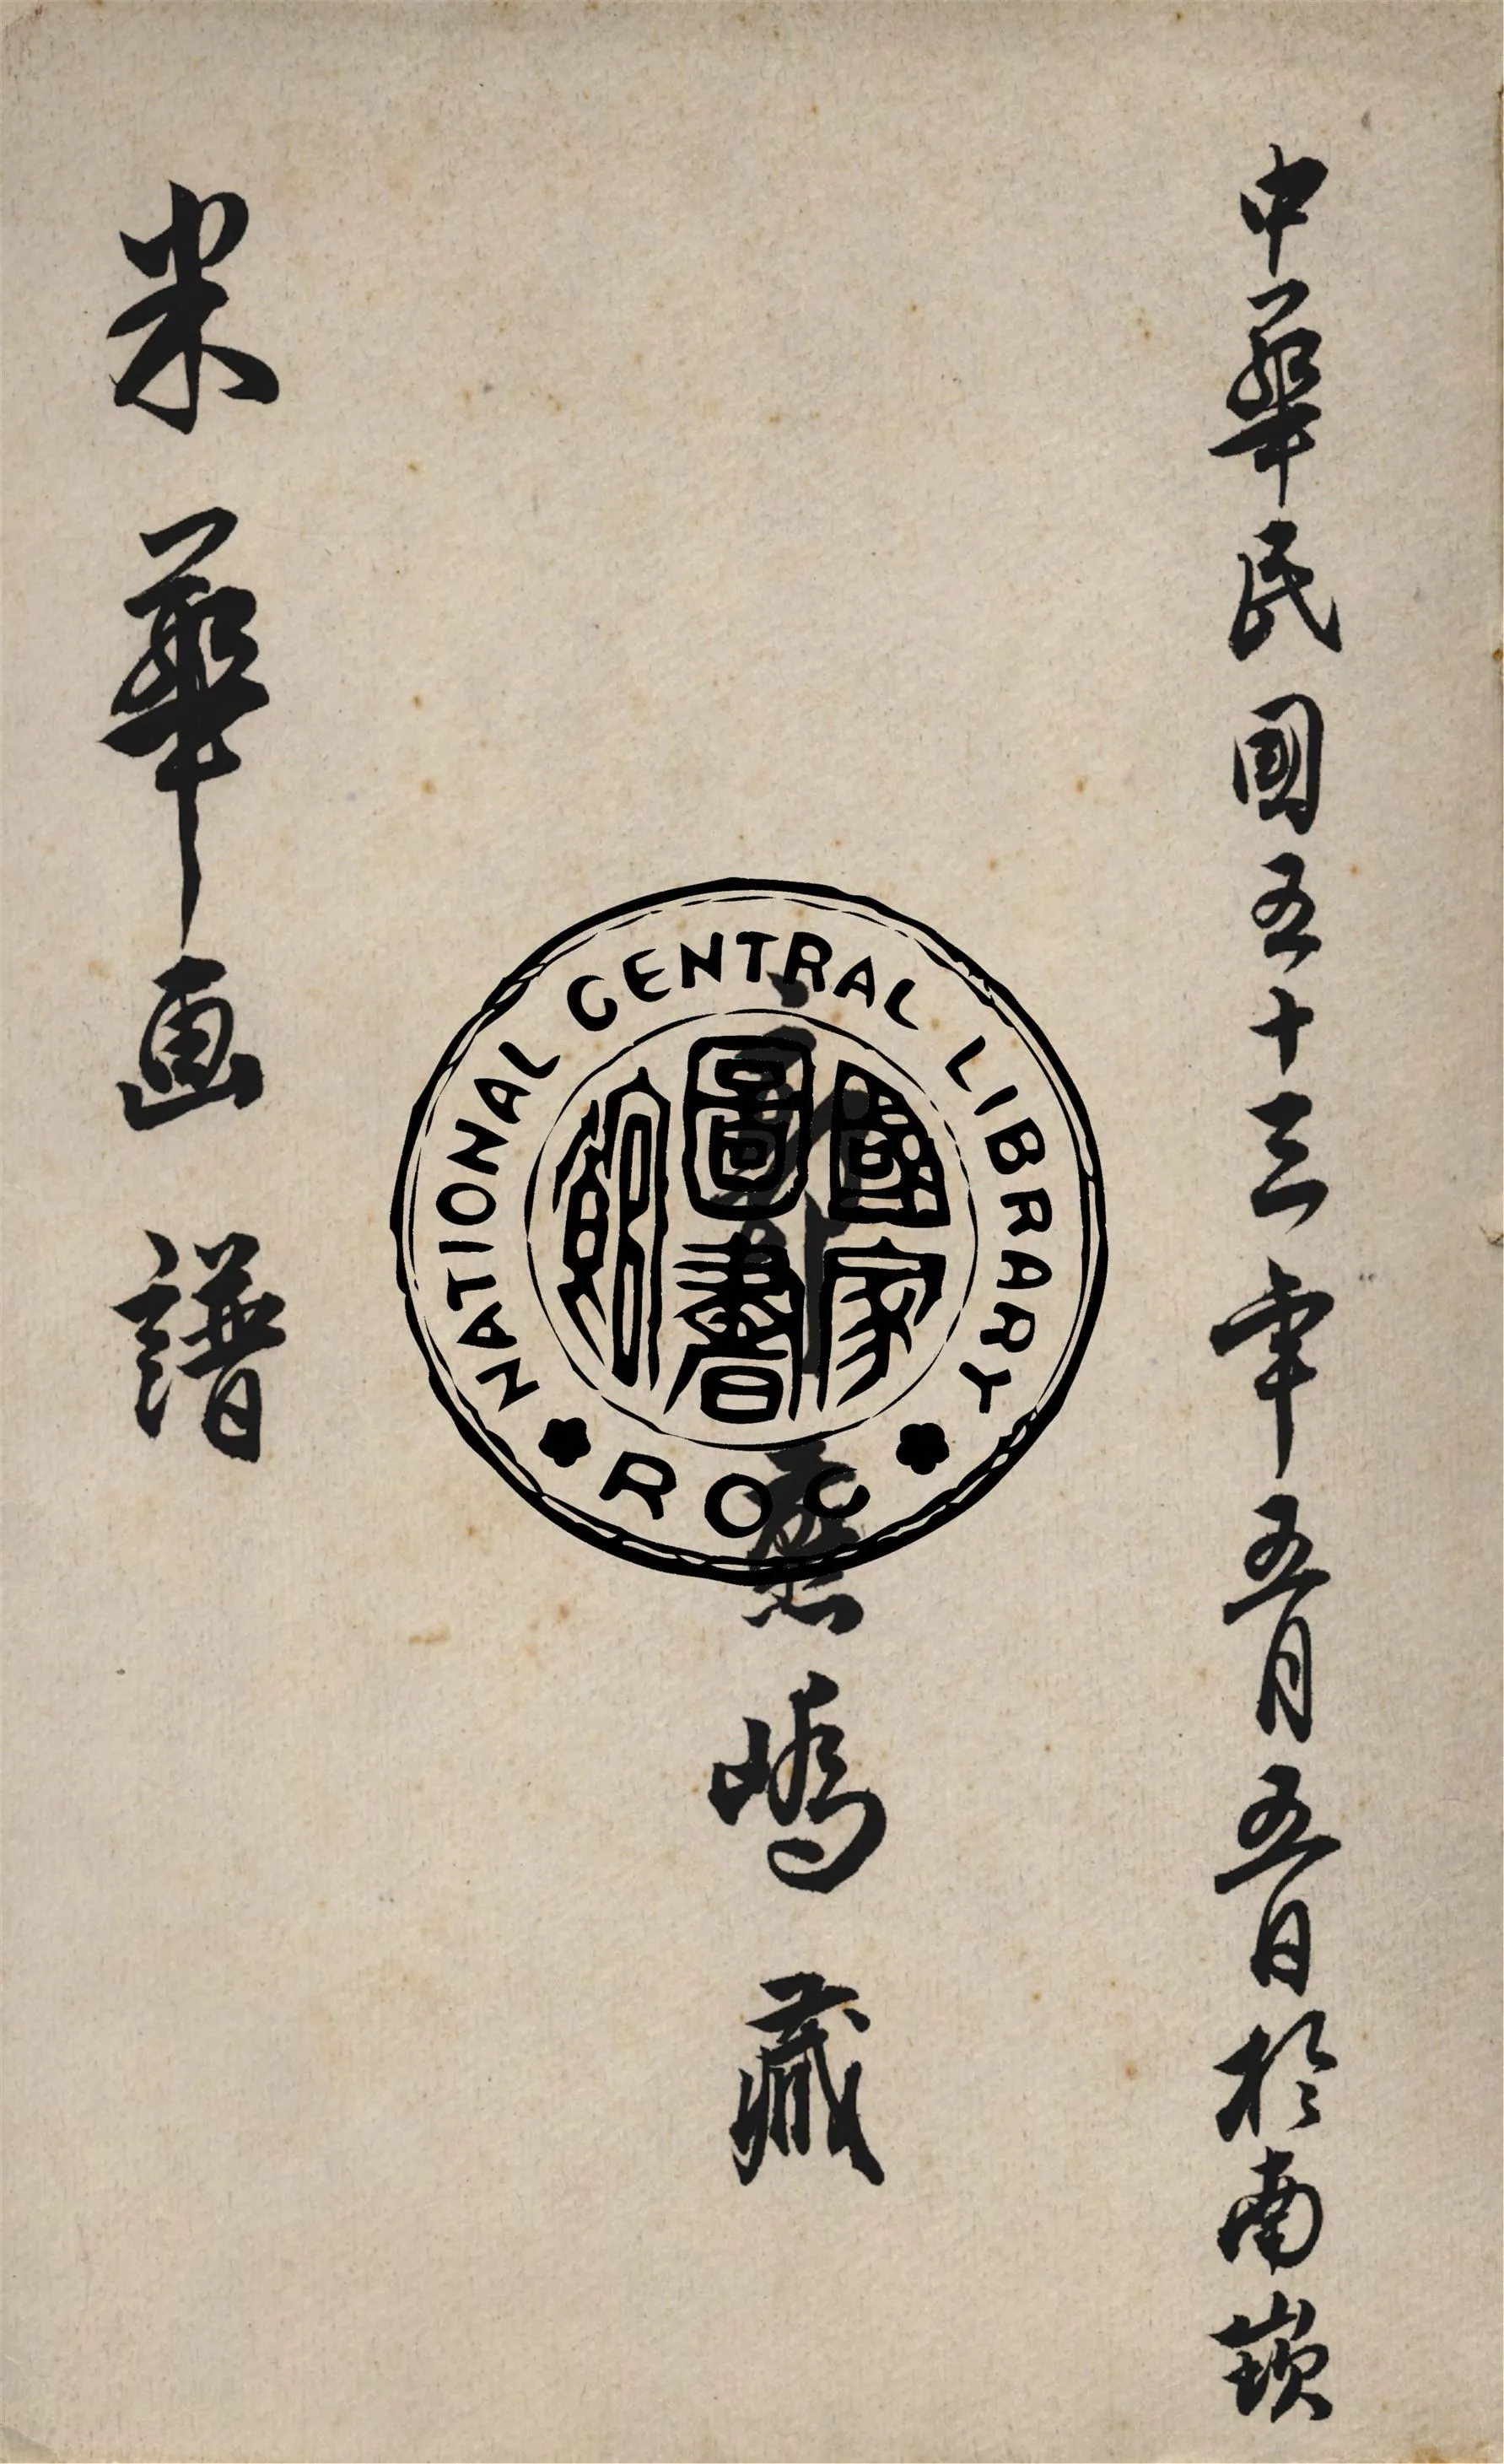 中華民國五十三年五月五日於南崁
嶋藏
米華画譜
NATIONAL CENTRAL LIBRARY
國家圖書館
ROC